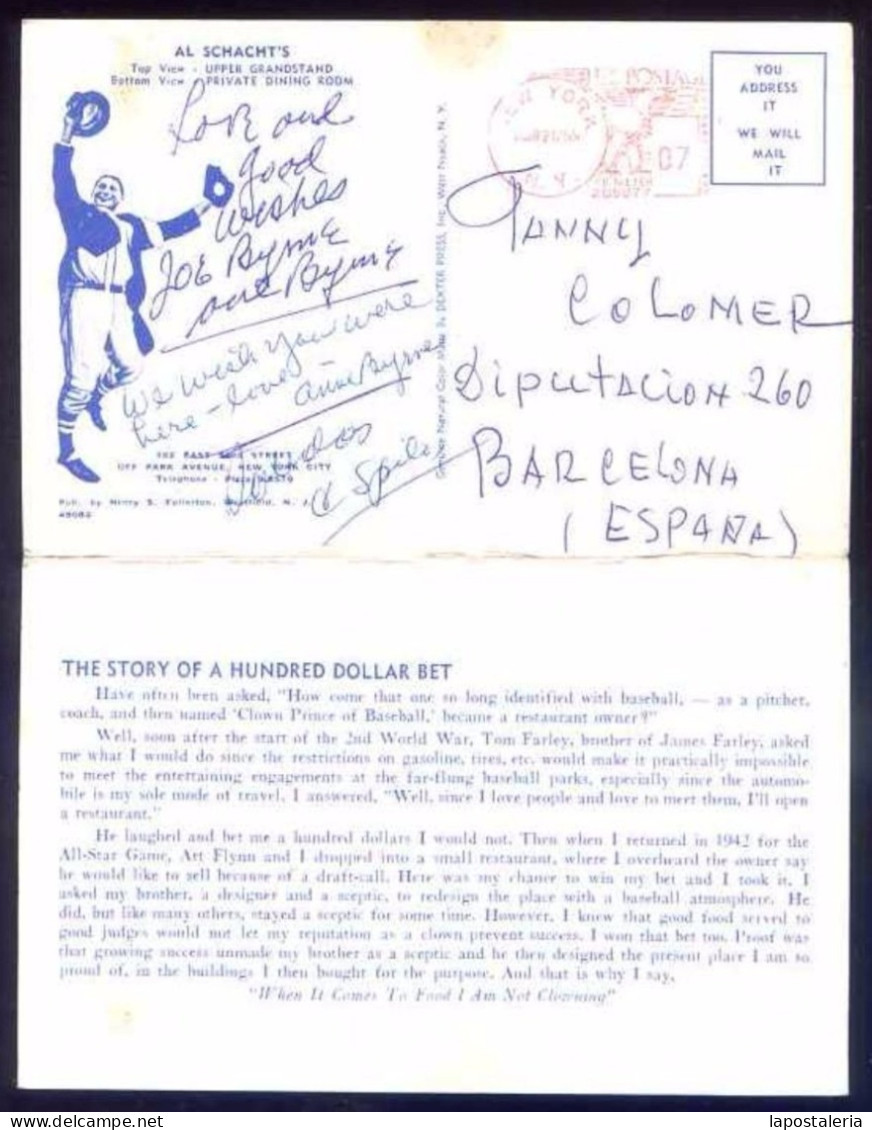 AL SCHACHT'S
Top View - UPPER GRANDSTAND
Bottom View - PRIVATE DINING ROOM
Love and
good
wishes
Joe Byrne
and Byrne
We wish you were
here - love -
Anne Byrne
EAST STREET
OFF PARK AVENUE, NEW YORK CITY
Telephone -
Pub. by Henry S. Fullerton, N. J.
Genuine Natural Color Made By DEXTER PRESS, Inc. West Nyack, N. Y.
NEW YORK
N. Y.
U.S. POSTAGE
07
YOU
ADDRESS
IT
WE WILL
MAIL
IT
TANNY
COLOMER
Diputacion 260
BARCELONA
(ESPAÑA)
THE STORY OF A HUNDRED DOLLAR BET
Have often been asked, "How come that one so long identified with baseball, — as a pitcher,
coach, and then named 'Clown Prince of Baseball,' became a restaurant owner?"
Well, soon after the start of the 2nd World War, Tom Farley, brother of James Farley, asked
me what I would do since the restrictions on gasoline, tires, etc. would make it practically impossible
to meet the entertaining engagements at the far-flung baseball parks, especially since the automo-
bile is my sole mode of travel. I answered, "Well, since I love people and love to meet them, I'll open
a restaurant."
He laughed and bet me a hundred dollars I would not. Then when I returned in 1942 for the
All-Star Game, Art Flynn and I dropped into a small restaurant, where I overheard the owner say
he would like to sell because of a draft-call. Here was my chance to win my bet and I took it. I
asked my brother, a designer and a sceptic, to redesign the place with a baseball atmosphere. He
did, but like many others, stayed a sceptic for some time. However, I knew that good food served to
good judges would not let my reputation as a clown prevent success. I won that bet too. Proof was
that growing success unmade my brother as a sceptic and he then designed the present place I am so
proud of, in the buildings I then bought for the purpose. And that is why I say,
"When It Comes To Food I Am Not Clowning"
lapostaleria